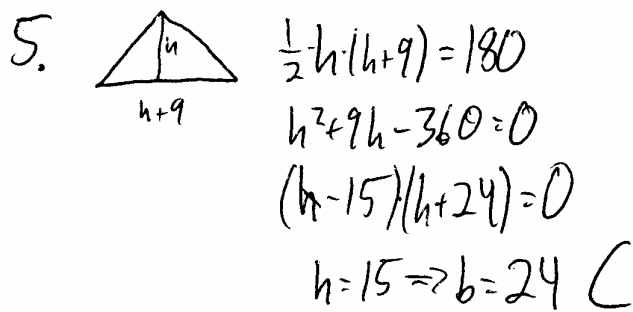 5.
h
h+9
1/2·h·(h+9)=180
h²+9h-360=0
(h-15)·(h+24)=0
h=15⇒b=24 C